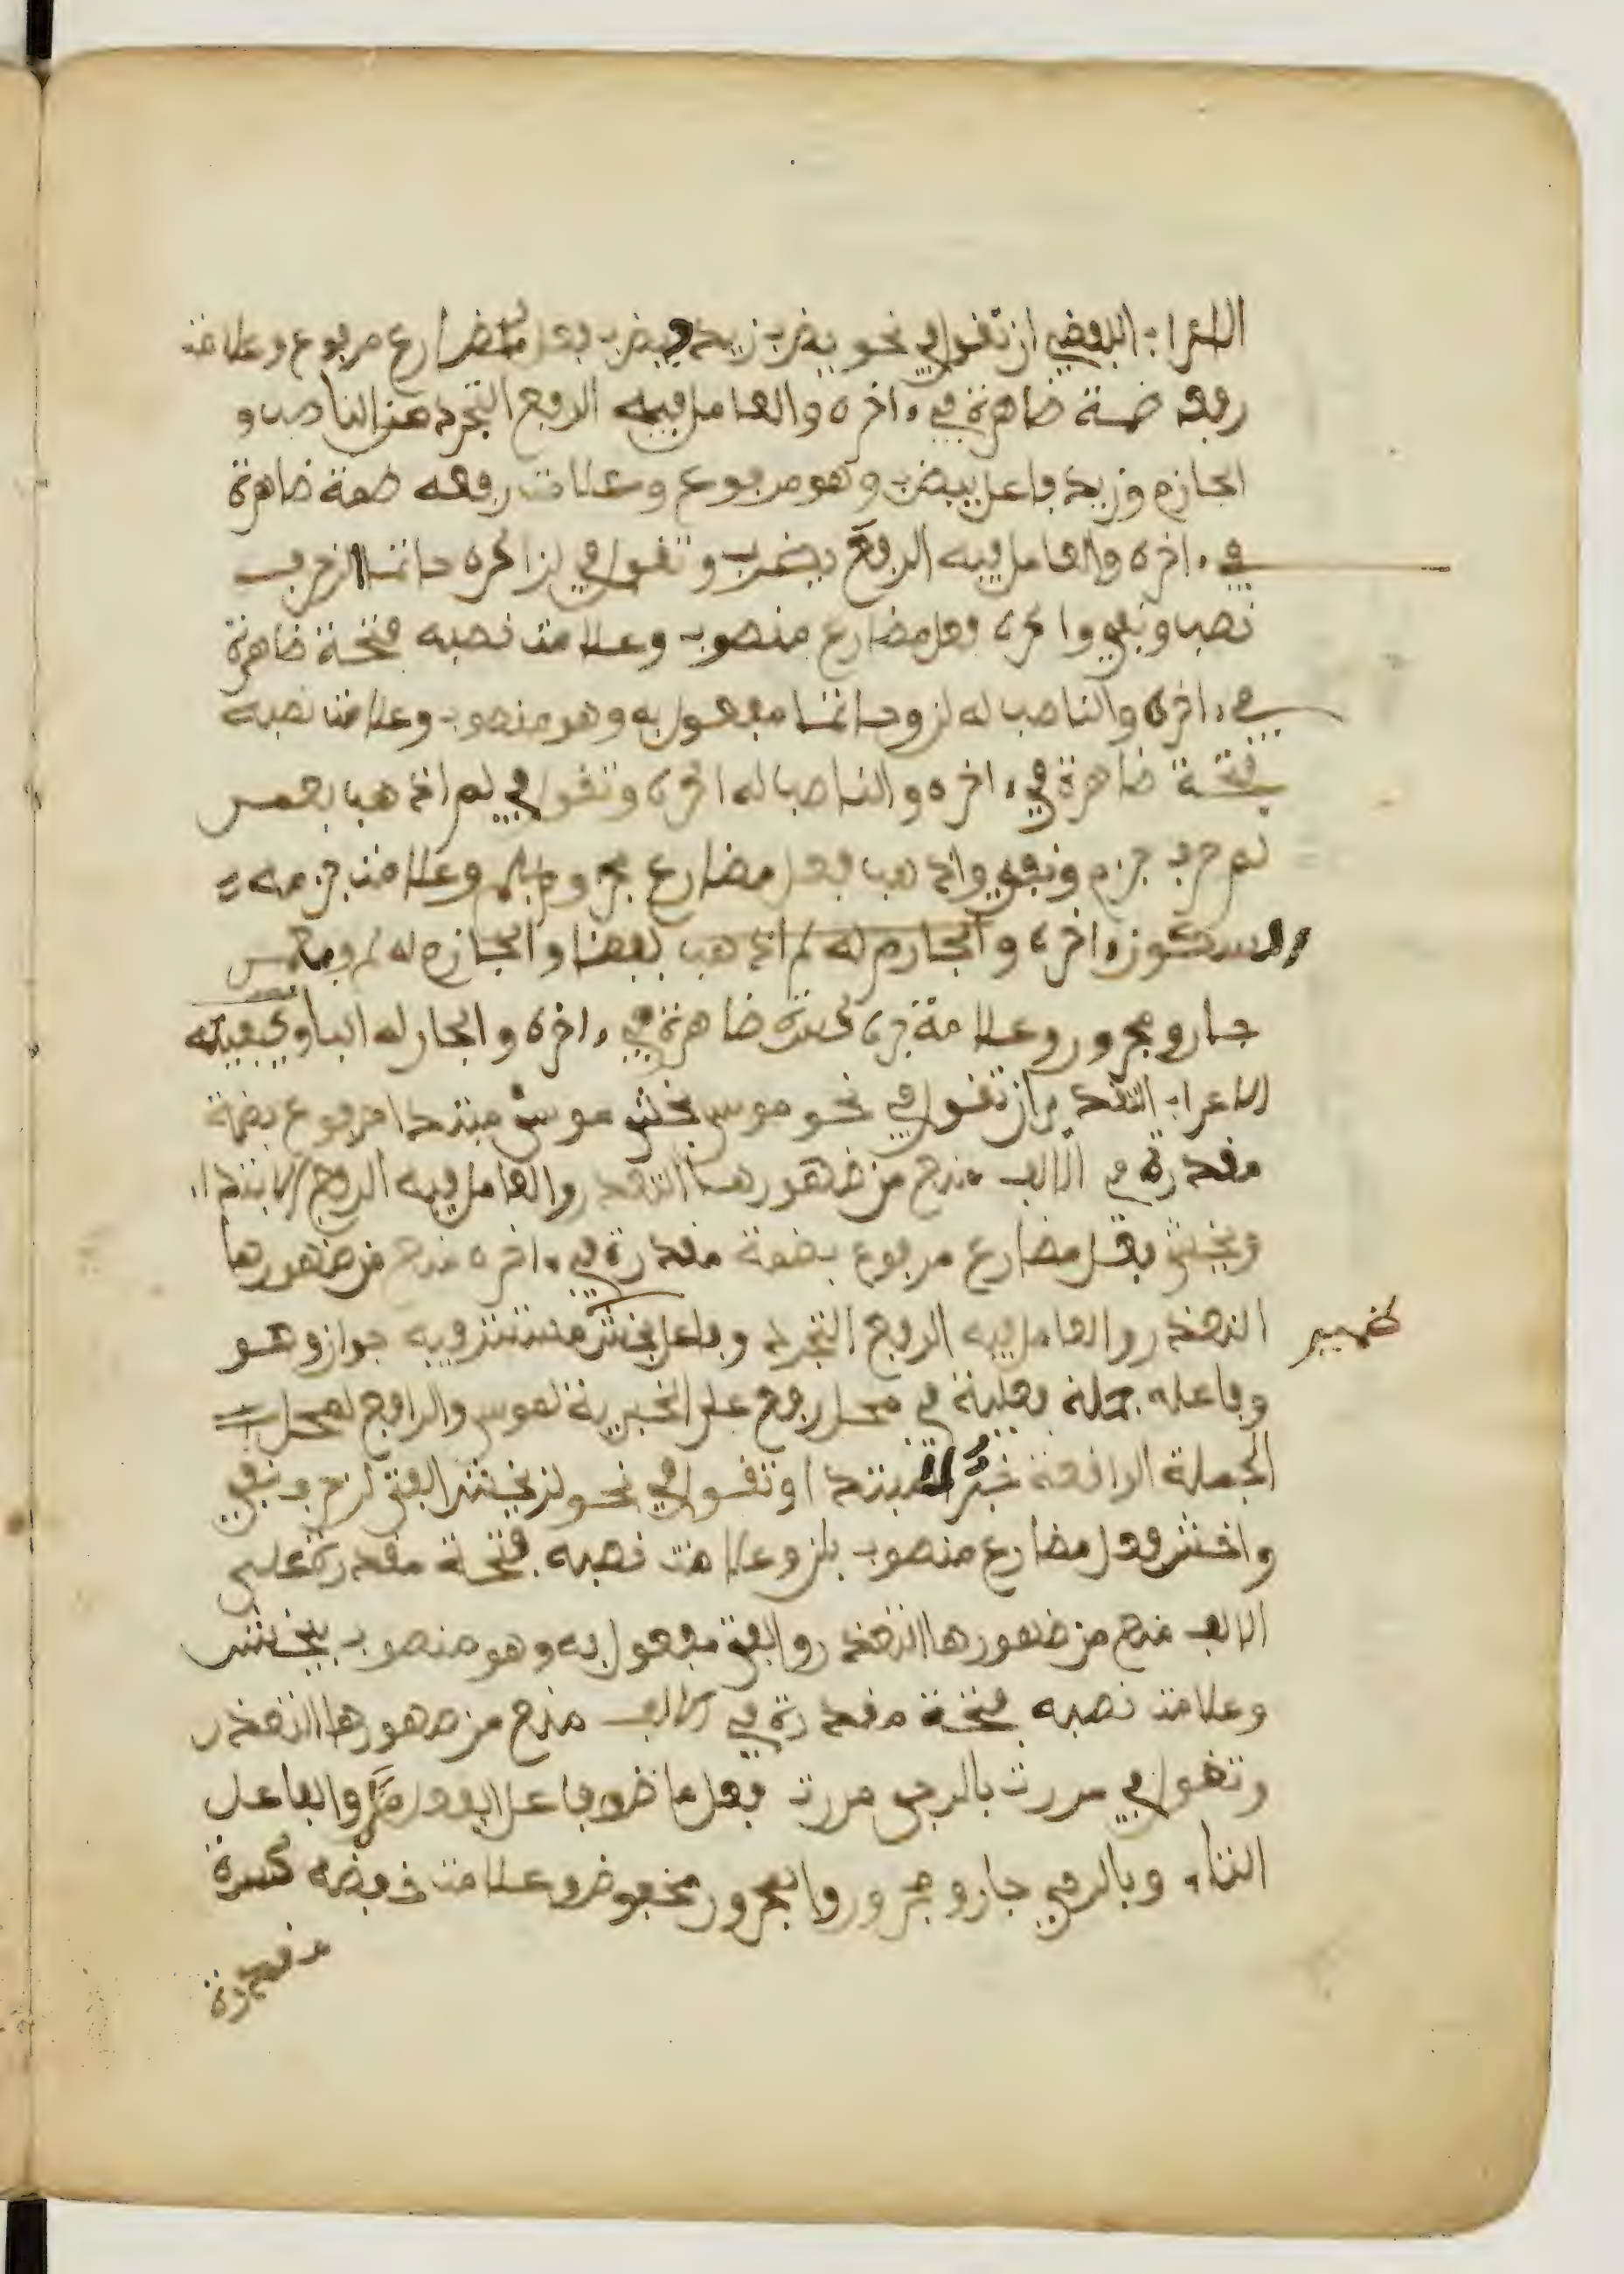 الاعراب اللفظي ان تقول في نحو يضرب زيد فيضرب فعل مضارع مرفوع وعلامت
رفعه ضمة ضاهرة في ءاخره والعامل فيه الرفع التجرد عن الناصب و
الجازم وزيد فاعل بيضرب وهو مرفوع وعلامت رفعه ضمة ضاهرة
في ءاخره والعامل فيه الرفع يضرب وتقول في لن اكره حاتما لن حرف
نصب ونفي واكره فعل مضارع منصوب وعلامت نصبه فتحة ضاهرة
في ءاخره والناصب له لن وحاتما مفعول به وهو منصوب وعلامت نصبه
فتحة ضاهرة في ءاخره والناصب له اكره وتقول في لم اذهب بعمس
لم حرف جزم ونفي واذهب فعل مضارع مجزوم بلم وعلامت جزمه
السكون ءاخره والجازم له لم اذهب لفضا والجازم له لم وبعمس
جار ومجرور وعلامة جره كسرة ضاهرة في ءاخره والجار له الباء وكيفيته
الاعراب التقدير ان تقول في نحو موسى يخشى موسى مبتدا مرفوع بضمة
مقدرة في الالف منع من ضهورها التعذر والعامل فيه الرفع الابتداء
ويخشى فعل مضارع مرفوع بضمة مقدرة في ءاخره منع من ضهورها
التعذر والعامل فيه الرفع التجرد وفاعل يخشى مستتر فيه جواز وهو
ضمير
وفاعله جملة فعلية في محل رفع على الخبرية لموسى والرافع لمحل
الجملة الرافعة خبر المبتدا وتقول في نحو لن يخشى الفتى لن حرف نفي
واخشى فعل مضارع منصوب بلن وعلامت نصبه فتحة مقدرة على
الالف منع من ضهورها التعذر والفتى مفعول به وهو منصوب بيخشى
وعلامت نصبه فتحة مقدرة في الالف منع من ضهورها التعذر
وتقول في مررت بالرحى مررت فعل ماض وفاعل الفعل مر والفاعل
التاء وبالرحى جار ومجرور والمجرور مخفوض وعلامت خفضه كسرة
مقدرة